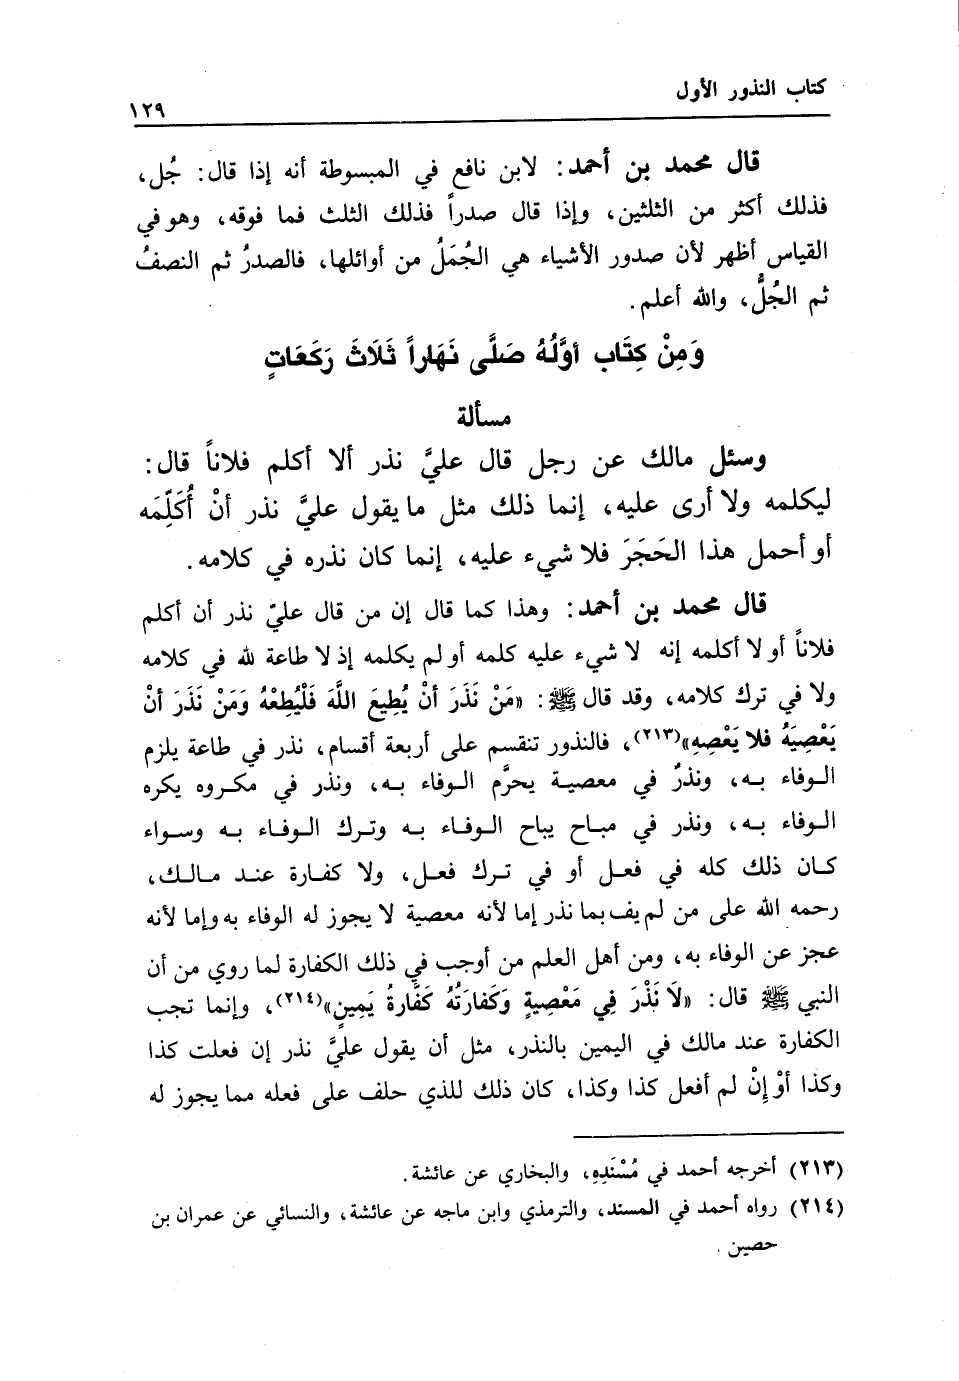 كتاب النذور الأول
١٢٩
قال محمد بن أحمد: لابن نافع في المبسوطة أنه إذا قال: جُل،
فذلك أكثر من الثلثين، وإذا قال صدراً فذلك الثلث فما فوقه، وهو في
القياس أظهر لأن صدور الأشياء هي الجُمَلُ من أوائلها، فالصدرُ ثم النصفُ
ثم الجُلُّ، والله أعلم.
وَمِنْ كِتَاب أوَّلُهُ صَلَّى نَهَاراً ثَلَاثَ رَكَعَاتٍ
مسألة
وسئل مالك عن رجل قال عليَّ نذر ألا أكلم فلاناً قال:
ليكلمه ولا أرى عليه، إنما ذلك مثل ما يقول عليَّ نذر أنْ أُكَلِّمَه
أو أحمل هذا الحَجَرَ فلا شيء عليه، إنما كان نذره في كلامه.
قال محمد بن أحمد: وهذا كما قال إن من قال عليّ نذر أن أكلم
فلاناً أو لا أكلمه إنه لا شيء عليه كلمه أو لم يكلمه إذ لا طاعة لله في كلامه
ولا في ترك كلامه، وقد قال ﷺ: «مَنْ نَذَرَ أنْ يُطِيعَ اللَّهَ فَلْيُطِعْهُ وَمَنْ نَذَرَ أنْ
يَعْصِيَهُ فلا يَعْصِهِ»(٢١٣)، فالنذور تنقسم على أربعة أقسام، نذر في طاعة يلزم
الوفاء به، ونذرٌ في معصية يحرَّم الوفاء به، ونذر في مكروه يكره
الوفاء به، ونذر في مباح يباح الوفاء به وترك الوفاء به وسواء
كان ذلك كله في فعل أو في ترك فعل، ولا كفارة عند مالك،
رحمه الله على من لم يف بما نذر إما لأنه معصية لا يجوز له الوفاء به وإما لأنه
عجز عن الوفاء به، ومن أهل العلم من أوجب في ذلك الكفارة لما روي من أن
النبي ﷺ قال: «لَا نَذْرَ فِي مَعْصِيةٍ وَكَفارَتُهُ كَفَّارةُ يَمِينٍ»(٢١٤)، وإنما تجب
الكفارة عند مالك في اليمين بالنذر، مثل أن يقول عليَّ نذر إن فعلت كذا
وكذا أوْ إِنْ لم أفعل كذا وكذا، كان ذلك للذي حلف على فعله مما يجوز له
(٢١٣) أخرجه أحمد في مُسْنَدِهِ، والبخاري عن عائشة.
(٢١٤) رواه أحمد في المسند، والترمذي وابن ماجه عن عائشة، والنسائي عن عمران بن
حصين.